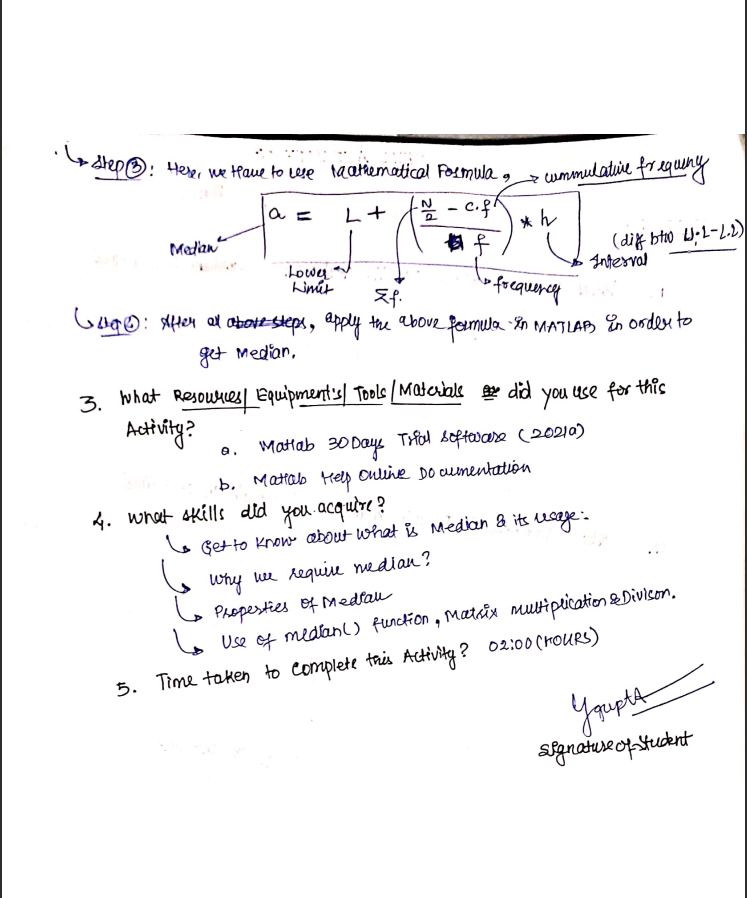 ↳ Step ③: Here, we Have to use Mathematical Formula,
→ cummulative frequeny
a = L + ( (N/2 - c.f) / f ) * h
Median
Lower Limit
Σf.
frequency
Interval
(diff btw U.L-L.L)
↳ Step ④: After al above steps, apply the above formula in MATLAB in order to
get Median.
3. What Resources/ Equipment's/ Tools/ Materials did you use for this
Activity?
a. Matlab 30 Days Trial software (2021a)
b. Matlab Help Online Documentation
4. What skills did you acquire?
↳ Get to know about what is Median & its usage:-
↳ Why we require median?
↳ Properties of Median
↳ Use of median() function, Matrix multiplication & Divison.
5. Time taken to complete this Activity? 02:00 (HOURS)
Ygupta
Signature of Student